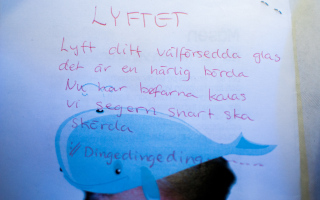 LYFTET
Lyft ditt välförsedda glas
det är en härlig börda
Nu har bofarna kalas
vi segern snart ska
skörda
// Dingedingeding